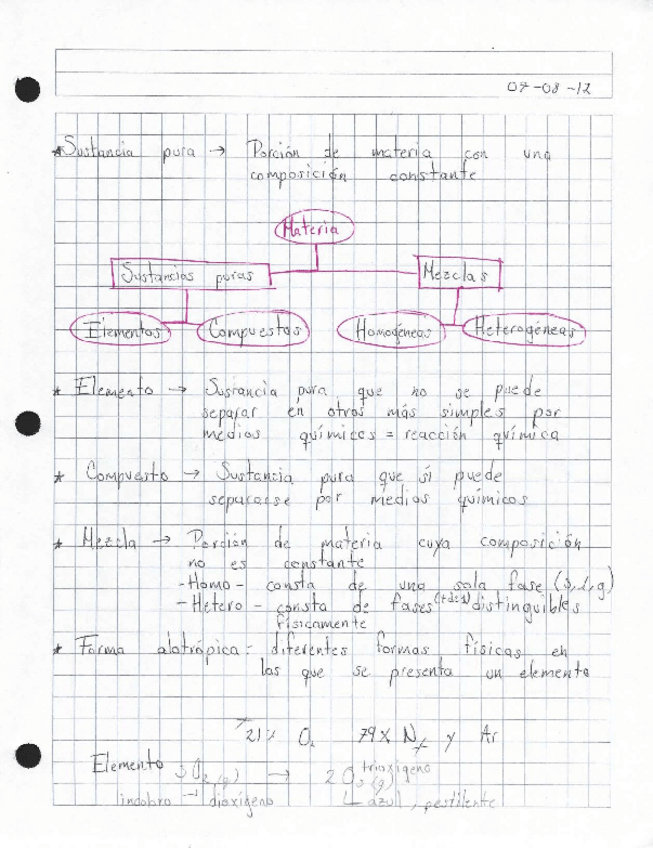 07-08-12
*Sustancia pura → Porción de materia con una
composición constante
Materia
Sustancias puras Mezclas
Elementos Compuestos Homogéneas Heterogéneas
* Elemento → Sustancia pura que no se puede
separar en otros más simples por
medios químicos = reacción química
* Compuesto → Sustancia pura que sí puede
separarse por medios químicos
* Mezcla → Porción de materia cuya composición
no es constante
-Homo- consta de una sola fase (s, l, g)
-Hetero- consta de fases (+de1) distinguibles
físicamente
* Forma alotrópica = diferentes formas físicas en
las que se presenta un elemento
21% O₂ 79% N₂ y Ar
Elemento 3O₂(g) → 2O₃(g) trioxígeno
dioxígeno azul, pestilente